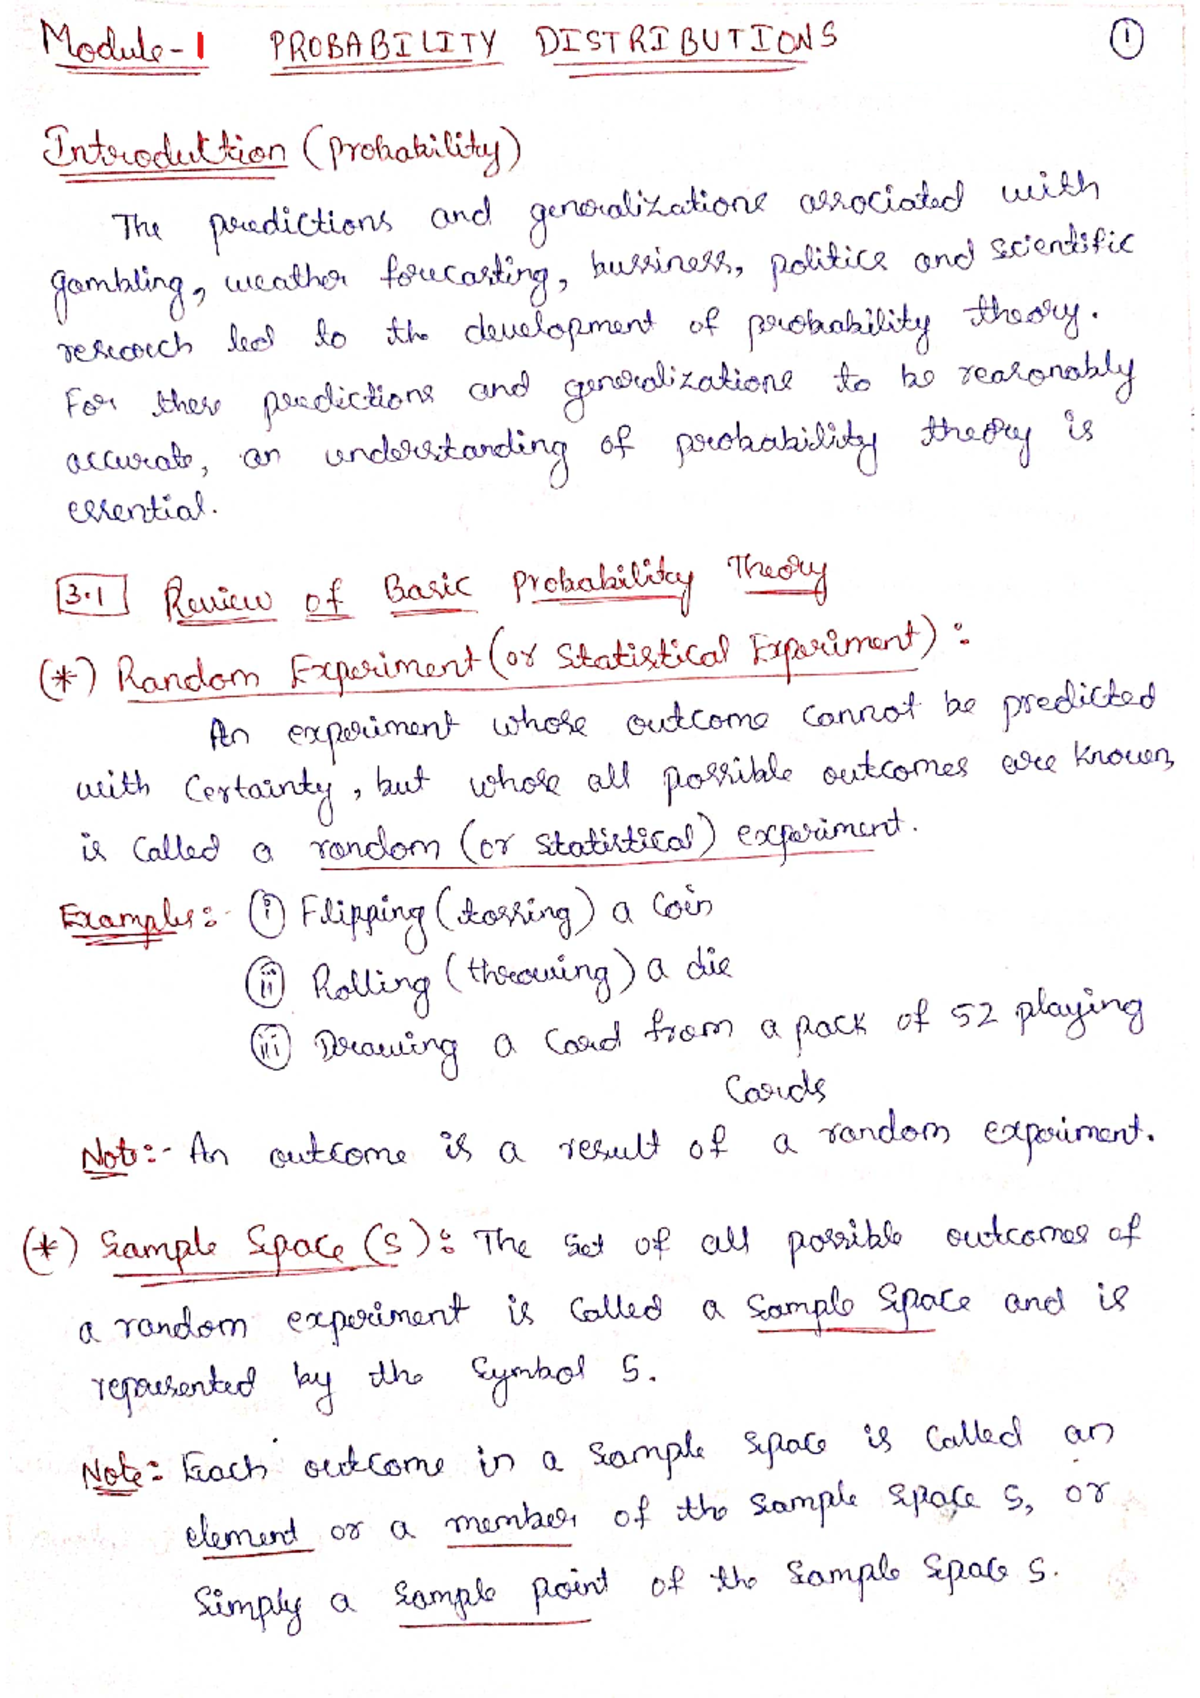 Module-1 PROBABILITY DISTRIBUTIONS 1
Introduction (probability)
The predictions and generalizations associated with
gambling, weather forecasting, bussiness, politics and scientific
research led to the development of probability theory.
For these predictions and generalizations to be reasonably
accurate, an understanding of probability theory is
essential.
3.1 Review of Basic Probability Theory
(*) Random Experiment (or Statistical Experiment) :
An experiment whose outcome cannot be predicted
with certainty, but whose all possible outcomes are known,
is called a random (or statistical) experiment.
Examples:- (i) Flipping (tossing) a coin
(ii) Rolling (throwing) a die
(iii) Drawing a card from a pack of 52 playing
cards
Note:- An outcome is a result of a random experiment.
(*) Sample Space (S) : The set of all possible outcomes of
a random experiment is called a sample space and is
represented by the symbol S.
Note: Each outcome in a sample space is called an
element or a member of the sample space S, or
simply a sample point of the sample space S.